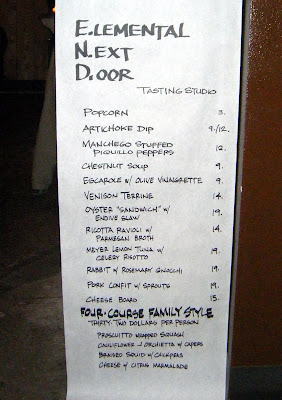 E.LEMENTAL
N.EXT
D.OOR
TASTING STUDIO
POPCORN 3.
ARTICHOKE DIP 9./12.
MANCHEGO STUFFED 12.
PIQUILLO PEPPERS
CHESTNUT SOUP 9.
ESCAROLE W/ OLIVE VINAIGRETTE 9.
VENISON TERRINE 14.
OYSTER "SANDWICH" W/ 19.
ENDIVE SLAW
RICOTTA RAVIOLI W/ 14.
PARMESAN BROTH
MEYER LEMON TUNA W/ 19.
CELERY RISOTTO
RABBIT W/ ROSEMARY GNOCCHI 19.
PORK CONFIT W/ SPROUTS 19.
CHEESE BOARD 15.
FOUR-COURSE FAMILY STYLE
THIRTY-TWO DOLLARS PER PERSON
PROSCUITTO WRAPPED SQUASH
CAULIFLOWER ORCHIETTA W/ CAPERS
BRAISED SQUID W/ CHICKPEAS
CHEESE W/ CITRUS MARMALADE